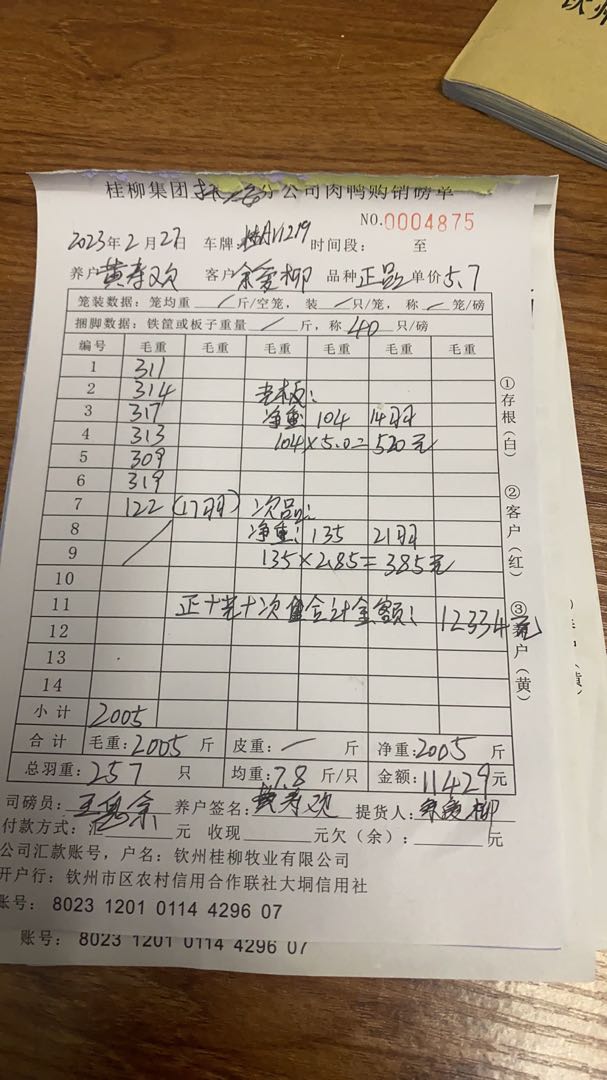 钦州
桂柳集团 分公司肉鸭购销磅单
NO.0004875
2023年2月27日 车牌:桂AV1219 时间段: 至
养户黄寿欢 客户余爱柳 品种正品 单价5.7
笼装数据:笼均重 / 斤/空笼,装 / 只/笼,称 / 笼/磅
捆脚数据:铁筐或板子重量 / 斤,称 40 只/磅
编号 毛重 毛重 毛重 毛重 毛重 毛重
1 311
2 314 老板:
3 317 净重:104 14羽
4 313 104×5.0=520元
5 309
6 319
7 122 (17羽) 次品:
8 净重:135 21羽
9 135×2.85=385元
10
11 正+老+次 合计金额:12334元
12
13
14
小计 2005
合计 毛重:2005斤 皮重:/ 斤 净重:2005斤
总羽重:257只 均重:7.8斤/只 金额:11429元
司磅员: 养户签名:黄寿欢 提货人:余爱柳
付款方式:汇 元 收现 元欠(余): 元
公司汇款账号,户名:钦州桂柳牧业有限公司
开户行:钦州市区农村信用合作联社大垌信用社
账号:8023 1201 0114 4296 07
账号:8023 1201 0114 4296 07
①存根(白)
②客户(红)
③养户(黄)